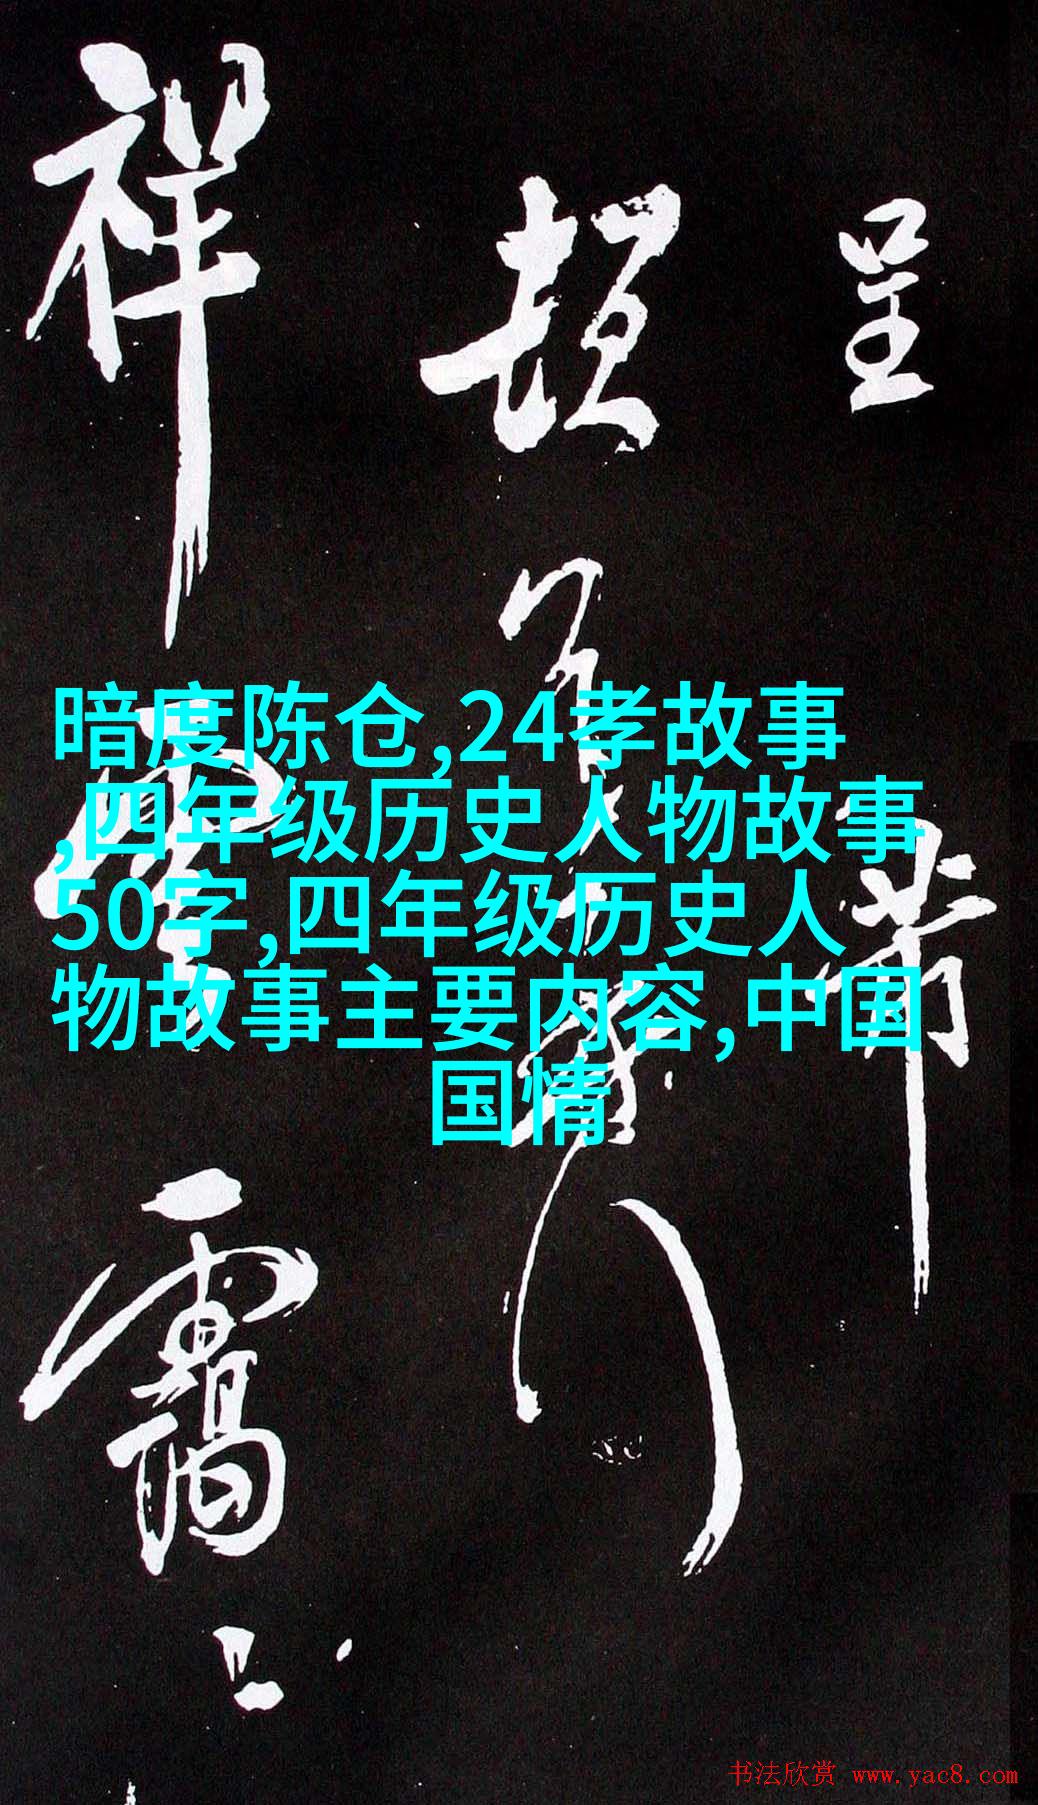 呈
祥
靄
暗度陈仓,24孝故事
,四年级历史人物故事
50字,四年级历史人
物故事主要内容,中国
国情
书法欣赏 www.yac8.com